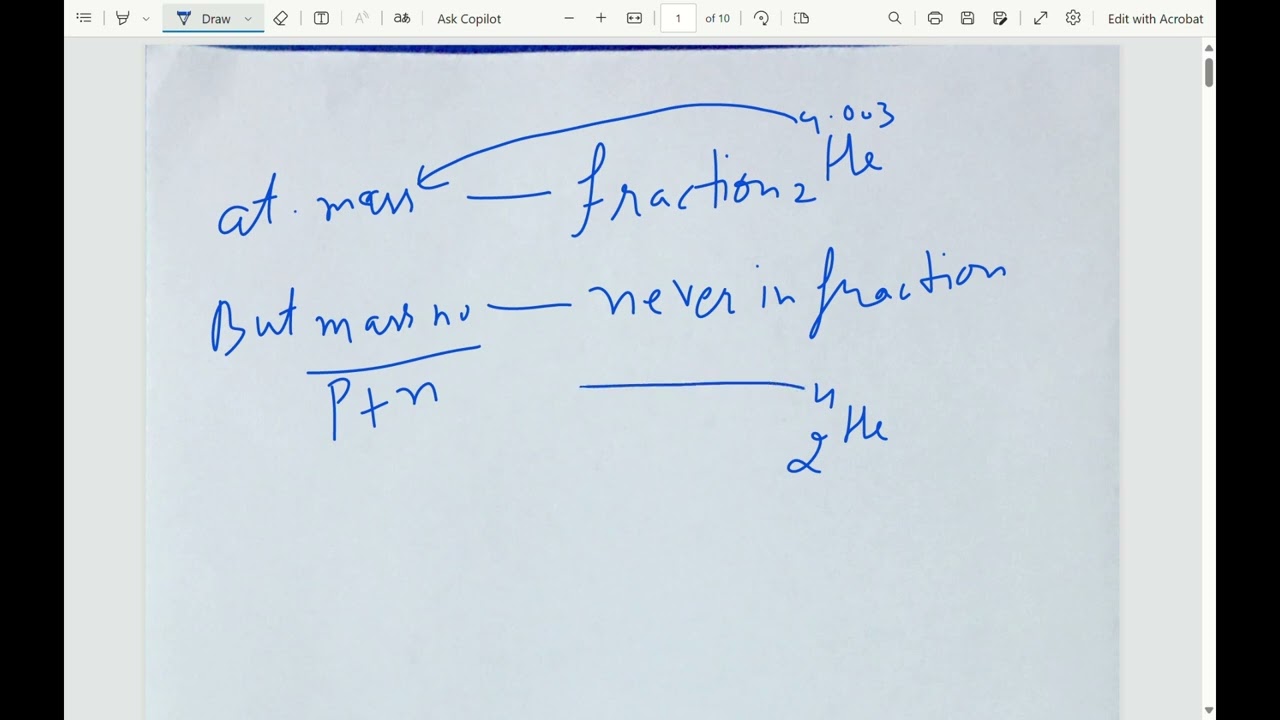 Draw
Ask Copilot
1 of 10
Edit with Acrobat
4.003
at. mass — fraction 2 He
But mass no — never in fraction
P+n
4
2 He